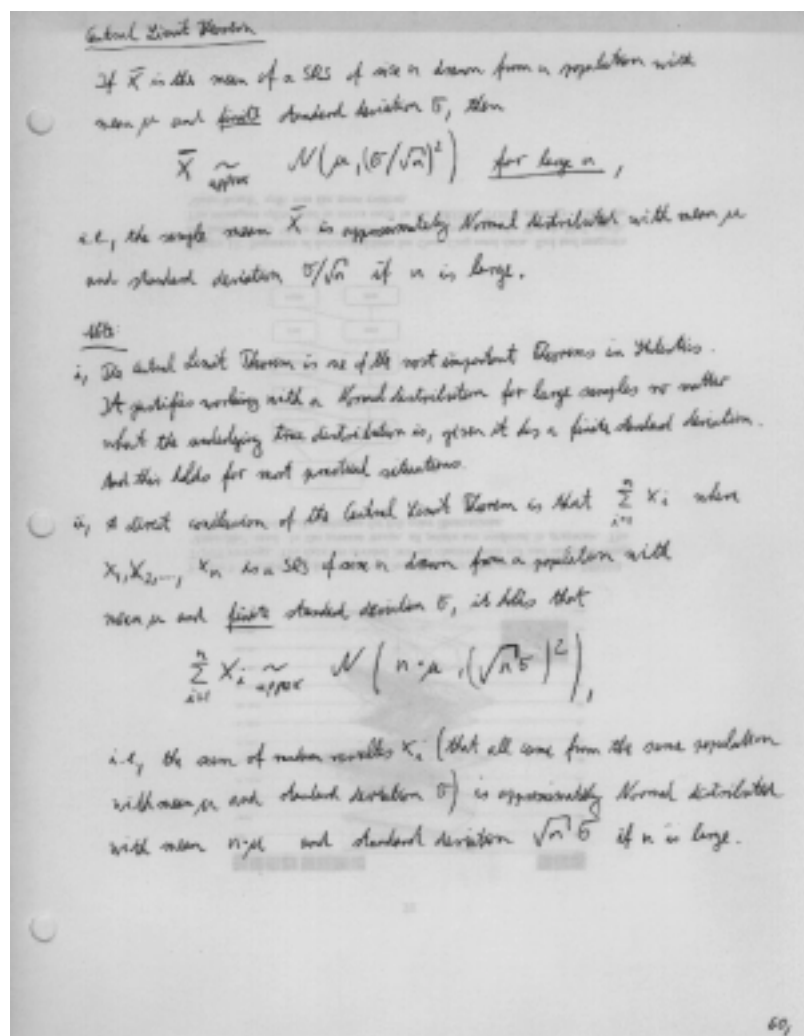 Central Limit Theorem
If X̄ is the mean of a SRS of size n drawn from a population with
mean μ and finite standard deviation σ, then
X̄ ~ approx N(μ, (σ/√n)²) for large n,
i.e., the sample mean X̄ is approximately Normal distributed with mean μ
and standard deviation σ/√n if n is large.
Note:
i, The Central Limit Theorem is one of the most important Theorems in Statistics.
It justifies working with a Normal distribution for large samples no matter
what the underlying true distribution is, given it has a finite standard deviation.
And this holds for most practical situations.
ii, A direct conclusion of the Central Limit Theorem is that ∑ᵢ₌₁ⁿ Xᵢ where
X₁, X₂, ..., Xₙ is a SRS of size n drawn from a population with
mean μ and finite standard deviation σ, it holds that
∑ᵢ₌₁ⁿ Xᵢ ~ approx N(n·μ, (√n σ)²),
i.e., the sum of random results Xᵢ (that all come from the same population
with mean μ and standard deviation σ) is approximately Normal distributed
with mean n·μ and standard deviation √n σ if n is large.
60,